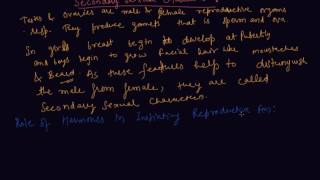 Secondary Sexual
Testes & ovaries are male & female reproductive organs
resp. They produce gametes that is sperm and ova.
In girls breast begin to develop at Puberty
and boys begin to grow facial hair like moustaches
& Beard. As these features help to distinguish
the male from female, they are called
Secondary Sexual Characters.
Role of Hormones In Initiating Reproductive Fns: